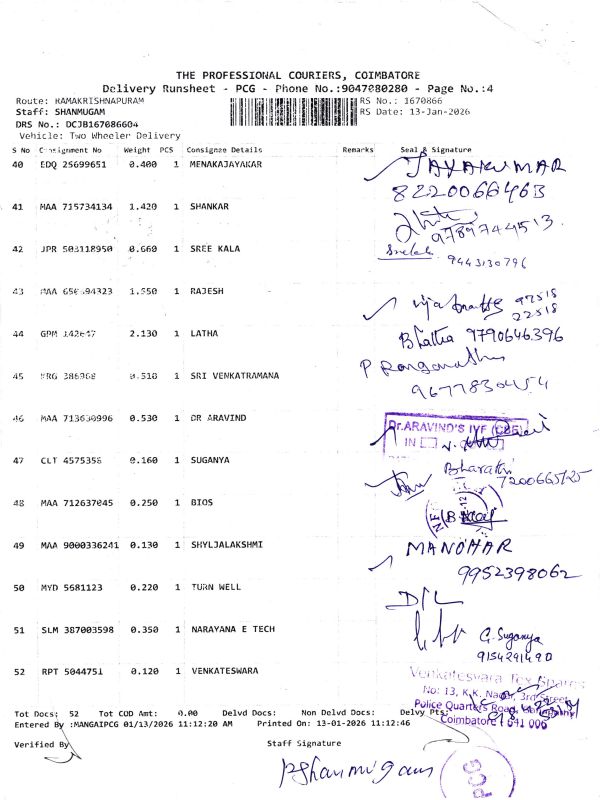 THE PROFESSIONAL COURIERS, COIMBATORE
Delivery Runsheet - PCG - Phone No.:9047080280 - Page No.:4
Route: RAMAKRISHNAPURAM RS No.: 1670866
Staff: SHANMUGAM RS Date: 13-Jan-2026
DRS No.: DCJB167086604
Vehicle: Two Wheeler Delivery
S No Consignment No Weight PCS Consignee Details Remarks Seal & Signature
40 EDQ 25699651 0.400 1 MENAKAJAYAKAR JAYAKUMAR
8220066463
41 MAA 715734134 1.420 1 SHANKAR
9789744513
42 JPR 503118950 0.660 1 SREE KALA Sreekala
9443130796
43 MAA 1.550 1 RAJESH 97518
22518
44 GPM 2.130 1 LATHA Blatha 9790646396
P Ranganathan
45 1 SRI VENKATRAMANA 9677830454
46 MAA 0.530 1 DR ARAVIND Dr.ARAVIND'S IVF (CBE)
47 CLT 4575358 0.160 1 SUGANYA Bharathi
7200665125
48 MAA 712637045 0.250 1 BIOS
49 MAA 9000336241 0.130 1 SHYLJALAKSHMI MANOHAR
9952398062
50 MYD 5681123 0.220 1 TURN WELL D/L
51 SLM 387003598 0.350 1 NARAYANA E TECH G. Suganya
9154291490
52 RPT 5044751 0.120 1 VENKATESWARA Venkateswara Tex Spares
No: 13, K.K. Nagar, 3rd Street
Police Quarters Road,
Coimbatore - 641 006
Tot Docs: 52 Tot COD Amt: 0.00 Delvd Docs: Non Delvd Docs: Delvy Pts:
Entered By :MANGAIPCG 01/13/2026 11:12:20 AM Printed On: 13-01-2026 11:12:46
Verified By Staff Signature
PShanmugam
PCG